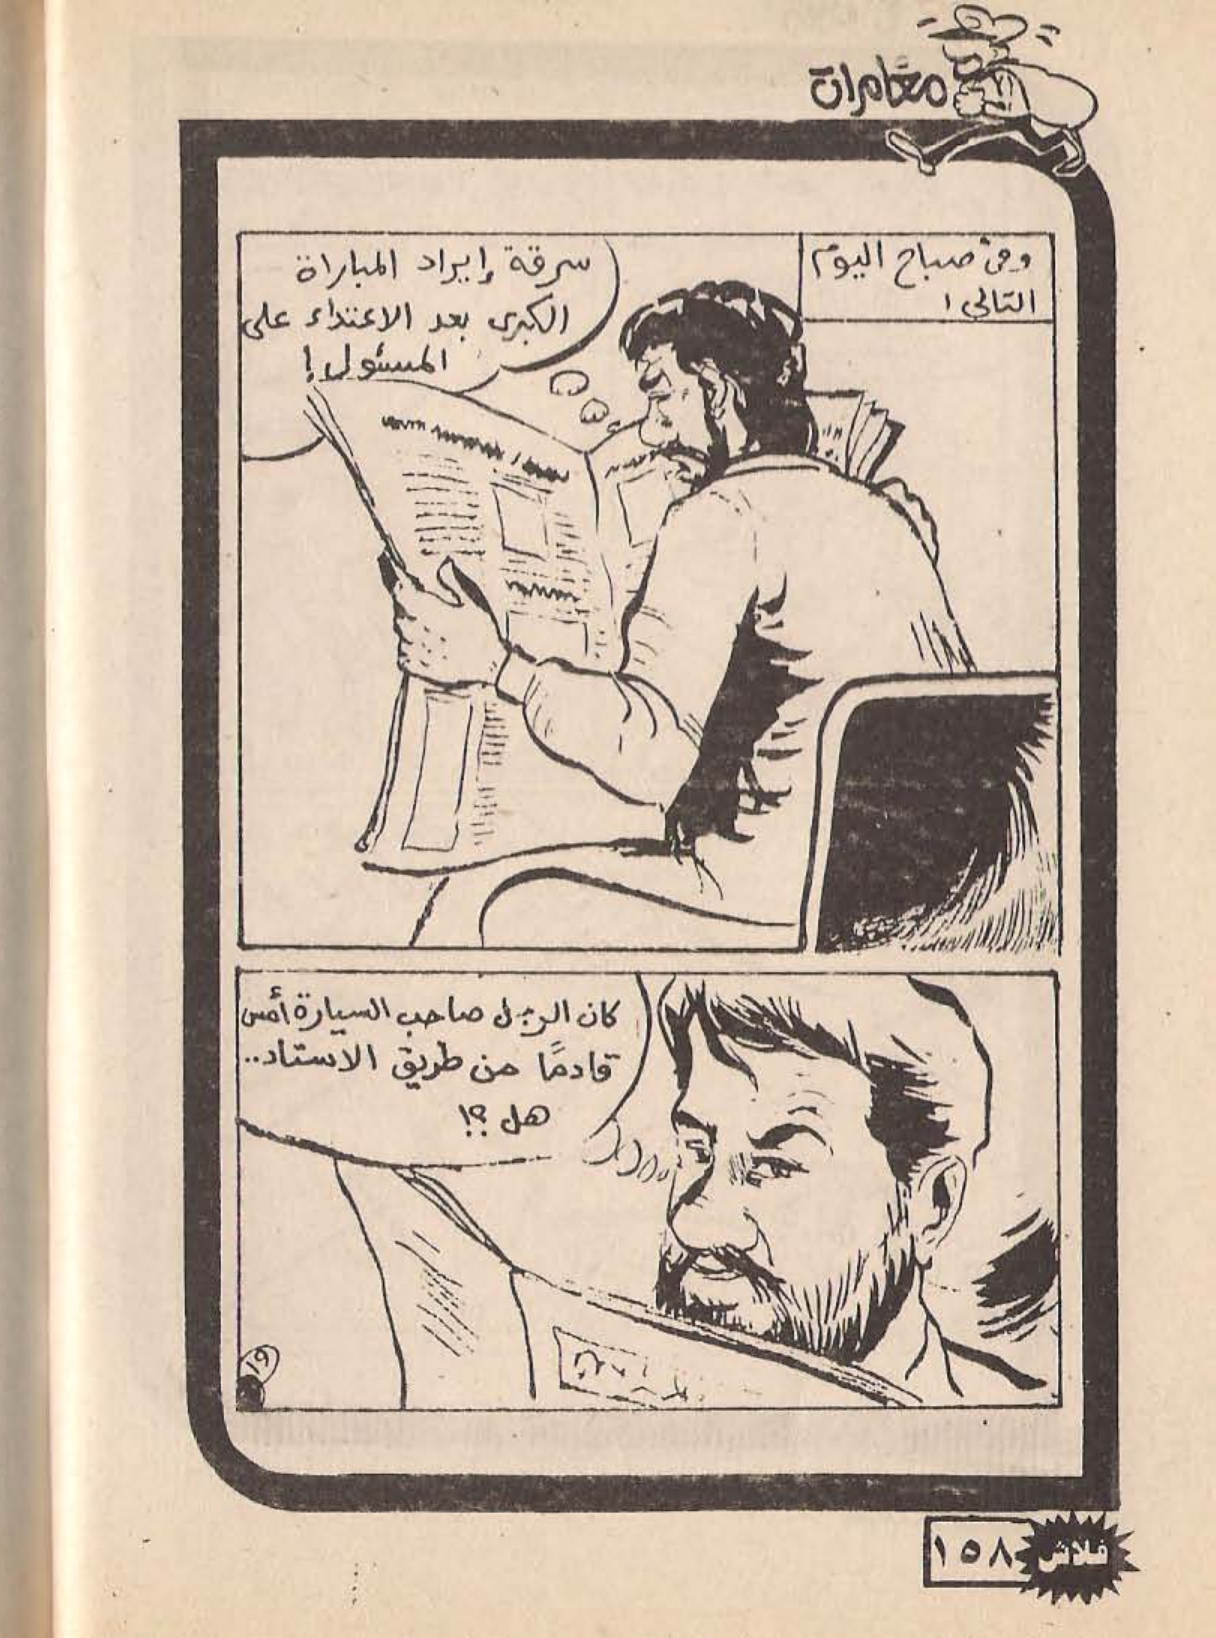 مغامرات
وفى صباح اليوم
التالى !
سرقة إيراد المباراة
الكبرى بعد الاعتداء على
المسئول !
كان الرجل صاحب السيارة أمس
قادمًا من طريق الاستاد..
هل ؟!
١٩
فلاش ١٥٨